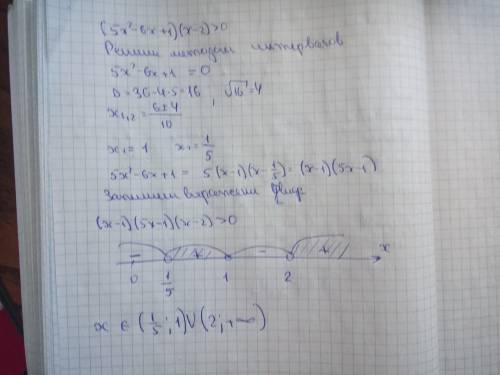 (5x²-6x+1)(x-2)>0
Решим методом интервалов
5x²-6x+1 = 0
D = 36-4·5=16 , √16=4
x₁,₂ = (6±4)/10
x₁ = 1 x₂ = 1/5
5x²-6x+1 = 5(x-1)(x-1/5) = (x-1)(5x-1)
Запишем выражение
(x-1)(5x-1)(x-2)>0
- + - + x
0 1/5 1 2
x ∈ (1/5; 1)∪(2; +∞)